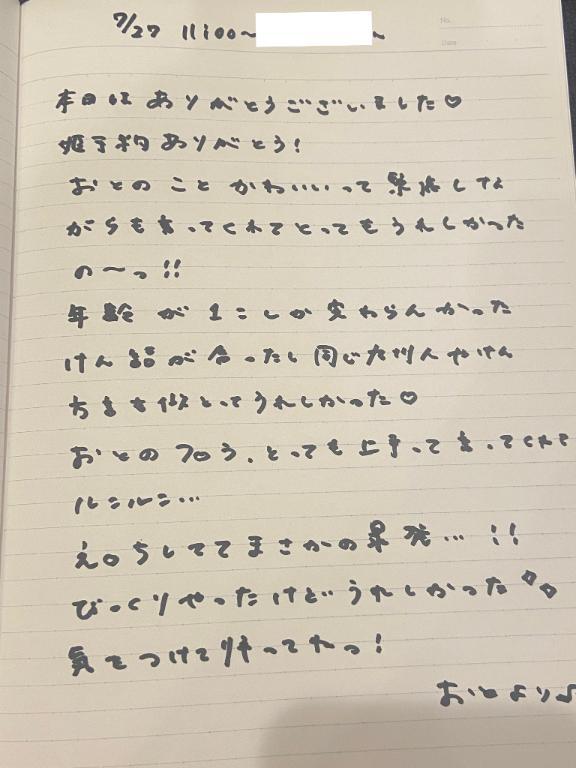 No.
Date
7/27 11:00〜
本日は ありがとうございました♡
姫予約ありがとう!
おとのこと かわいいって 緊張しな
がらも言ってくれてとってもうれしかった
の〜っ!!
年齢が1こしか変わらんかった
けん話が合ったし同じ九州人やけん
方言も似とってうれしかった♡
おとのフロう、とっても上手って言ってくれて
ルンルン…
えっちしてて まさかの暴発…!!
びっくりやったけどうれしかった
気をつけて帰ってねっ!
おとより♪